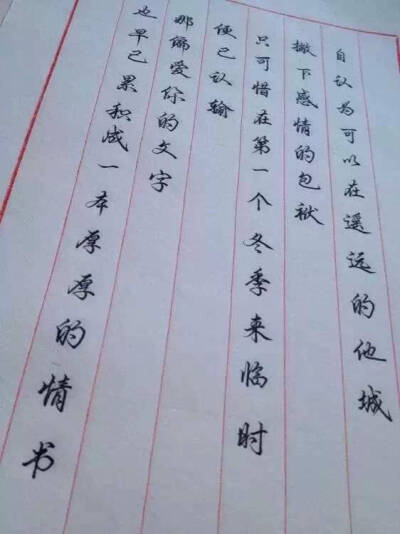 自认为可以在遥远的他城
撇下感情的包袱
只可惜在第一个冬季来临时
便已认输
那偏爱你的文字
也早已累积成一本厚厚的情书